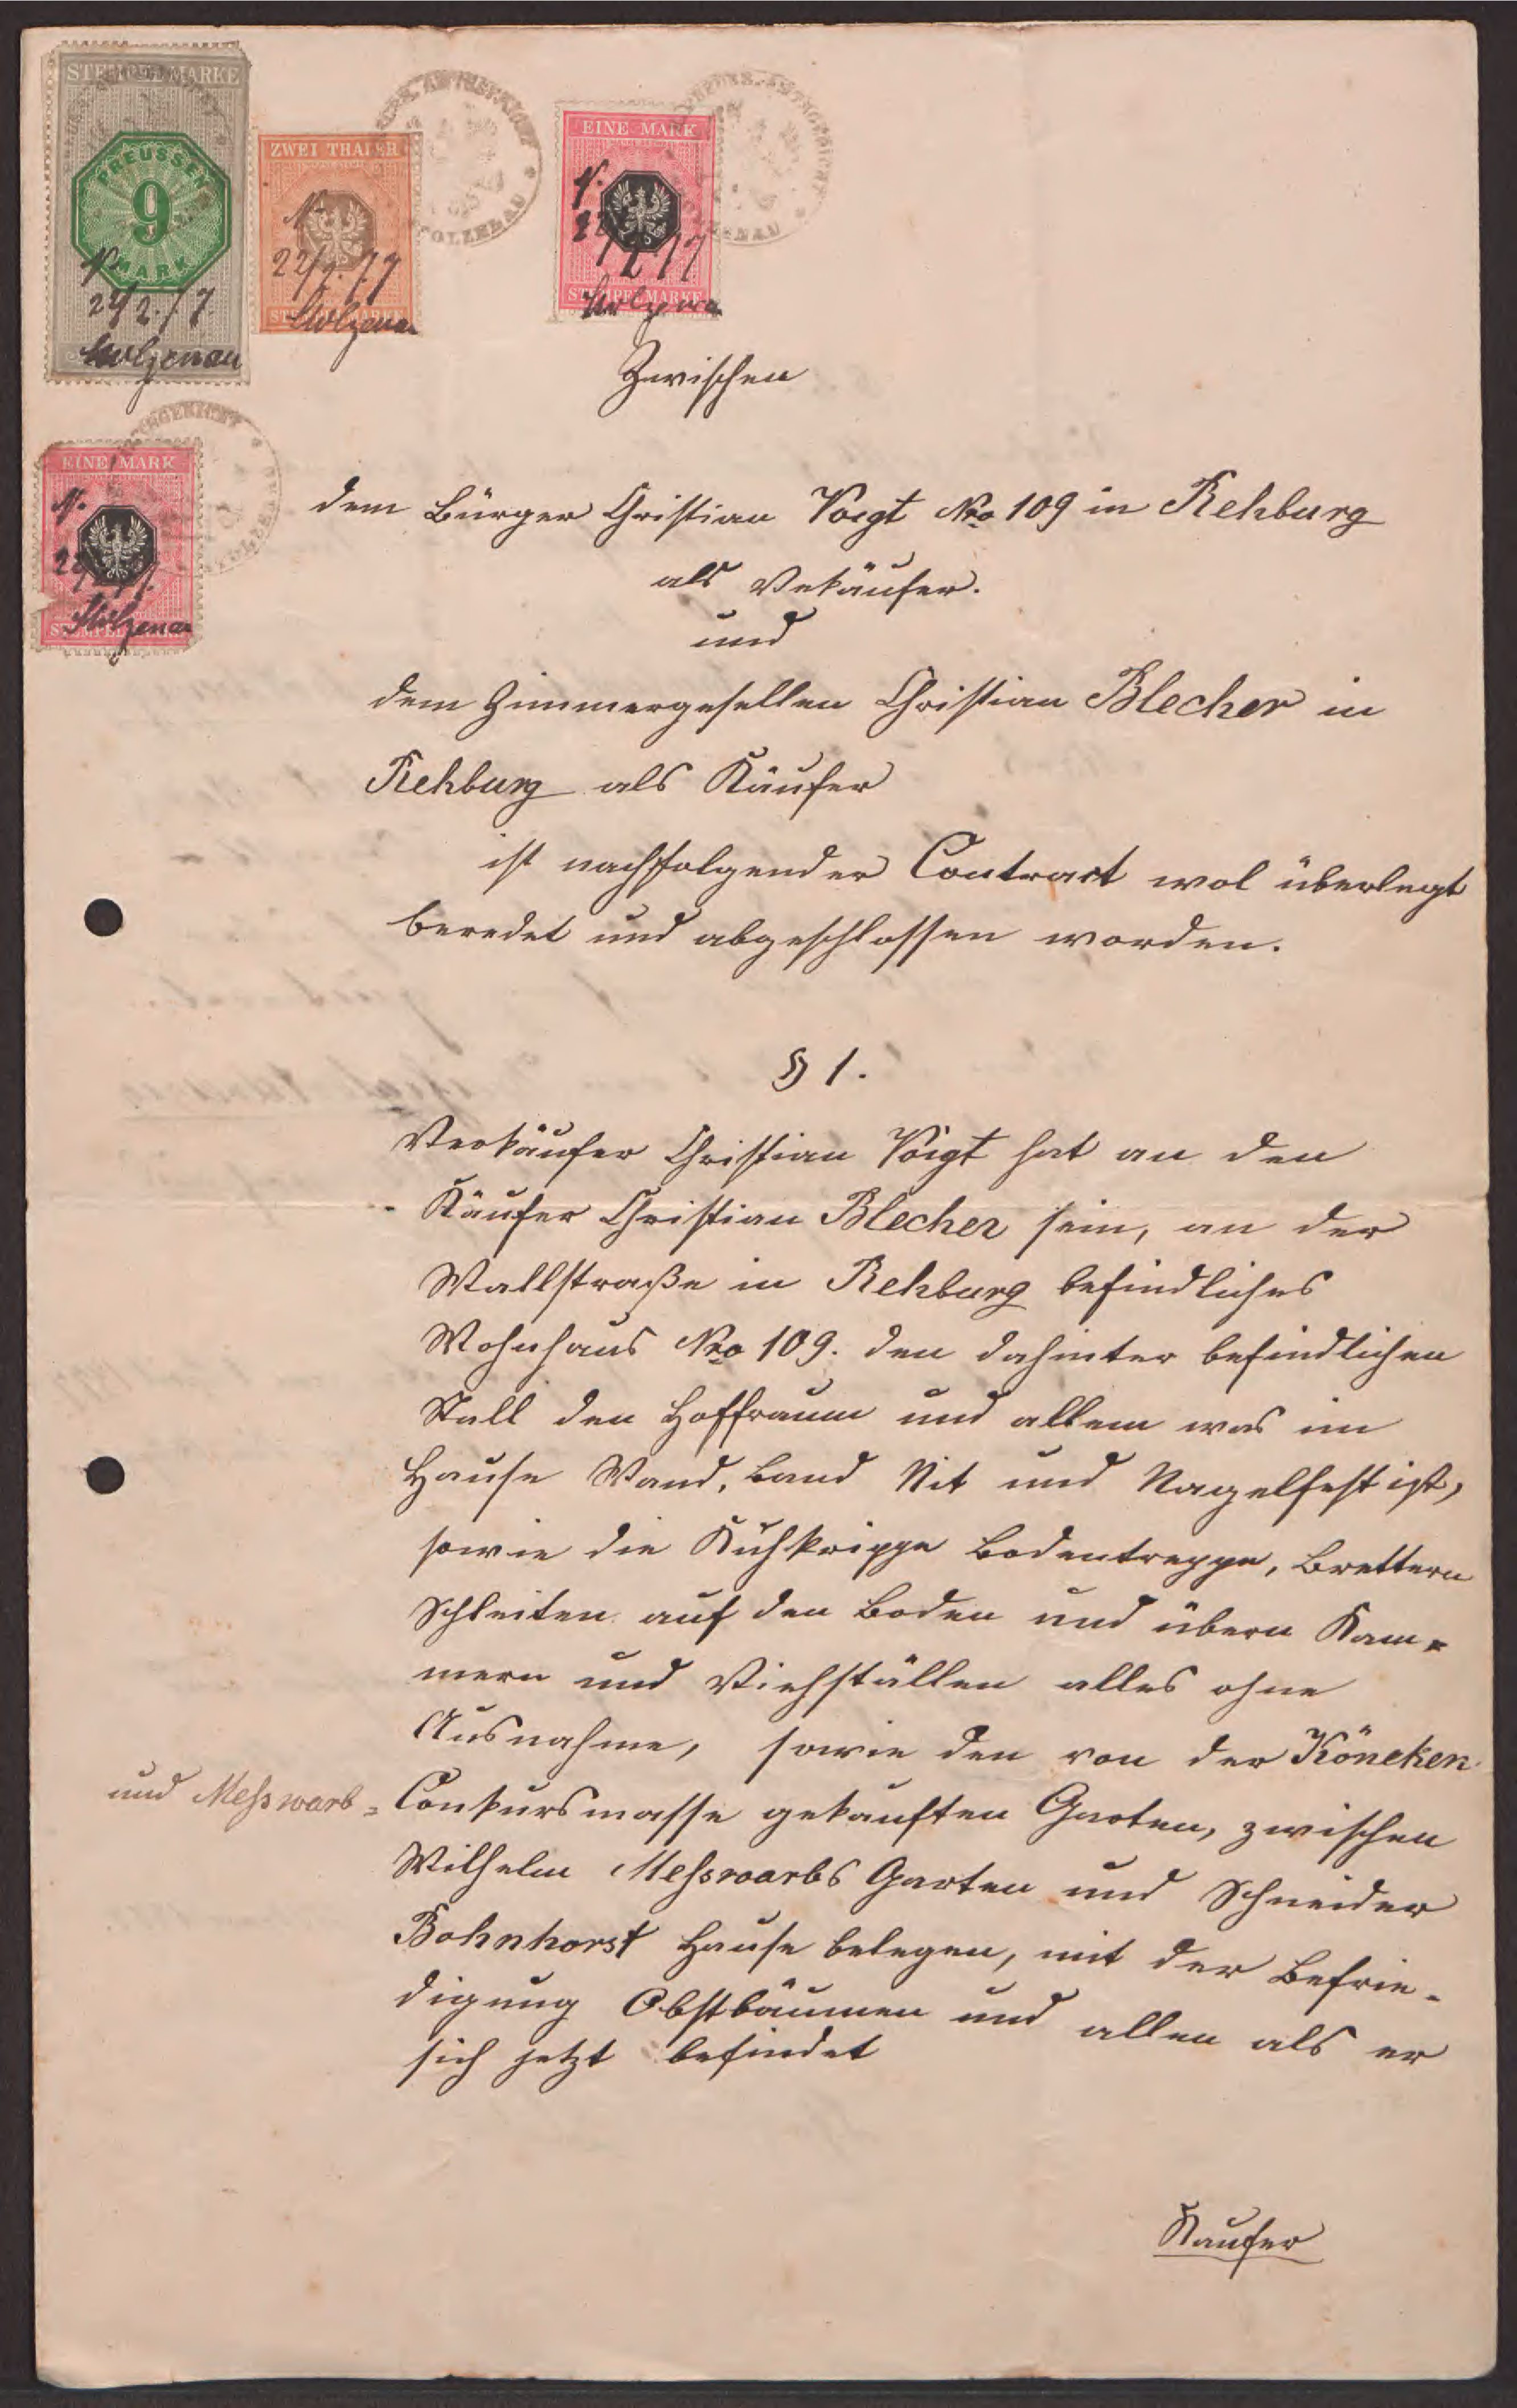 STEMPELMARKE
PREUSSEN
9
MARK
N.
22/2. 77.
Stolzenau
ZWEI THALER
N.
22/2. 77
STEMPELMARKE
Stolzenau
EINE MARK
N.
22/2 77
STEMPELMARKE
Stolzenau
STOLZENAU
Zwischen
EINE MARK
N.
STEMPELMARKE
Stolzenau
dem Bürger Christian Voigt Nro 109 in Rehburg
als Vekäufer.
und
dem Zimmergesellen Christian Blecher in
Rehburg als Käufer
ist nachfolgender Contract wol überlegt
beredet und abgeschlossen worden.
§ 1.
Verkäufer Christian Voigt hat an den
Käufer Christian Blecher sein, an der
Wallstraße in Rehburg befindliches
Wohnhaus Nro 109. den dahinter befindlichen
Stall den Hoffraum und allem was im
Hause Wand, Band Nit und Nagelfest ist,
sowie die Kuhkrippe Bodentreppe, Brettern
Schleiten auf den Boden und übern Kam-
mern und Viehställen alles ohne
Ausnahme, sowie den von der Köneken
und Meßwarb= Conkursmasse gekauften Garten, zwischen
Wilhelm Meßwarbs Garten und Schneider
Bohnhorst Hause belegen, mit der Befrie-
digung Obstbäumen und allen als er
sich jetzt befindet
Kaufer